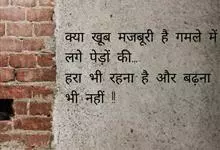 क्या खूब मजबूरी है गमले में
लगे पेड़ों की...
हरा भी रहना है और बढ़ना
भी नहीं !!